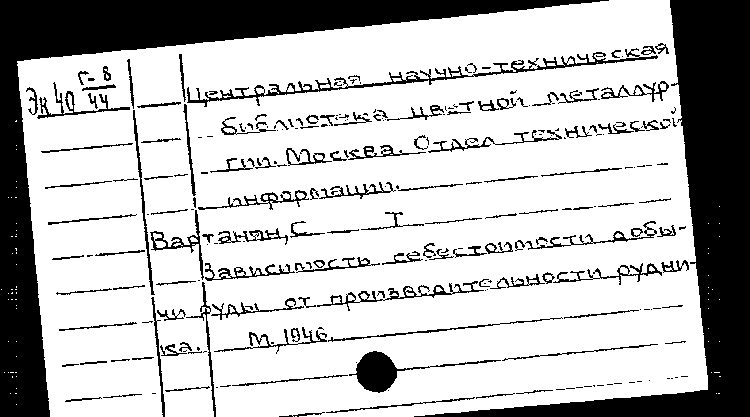 Эк40 Г-8/44
Центральная научно-техническая
библиотека цветной металлур-
гии. Москва. Отдел технической
информации.
Вартанян, С Т
Зависимость себестоимости добы-
чи руды от производительности рудни-
ка. М., 1946.